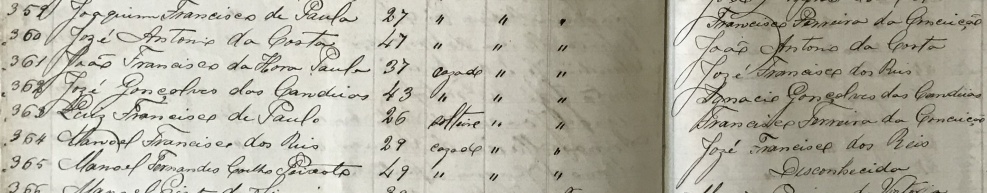 359 Joaquim Francisco de Paula 27 " " " Francisco Ferreira da Conceição
360 José Antonio da Costa 47 " " " João Antonio da Costa
361 João Francisco da Hora Paula 37 casado " " José Francisco dos Reis
362 José Gonçalves das Candeias 43 " " " Ignacio Gonçalves das Candeias
363 Luiz Francisco de Paulo 26 solteiro " " Francisco Ferreira da Conceição
364 Manoel Francisco dos Reis 29 casado " " José Francisco dos Reis
365 Manoel Fernandes Coelho Peixoto 49 " " " Desconhecido
366 Manoel